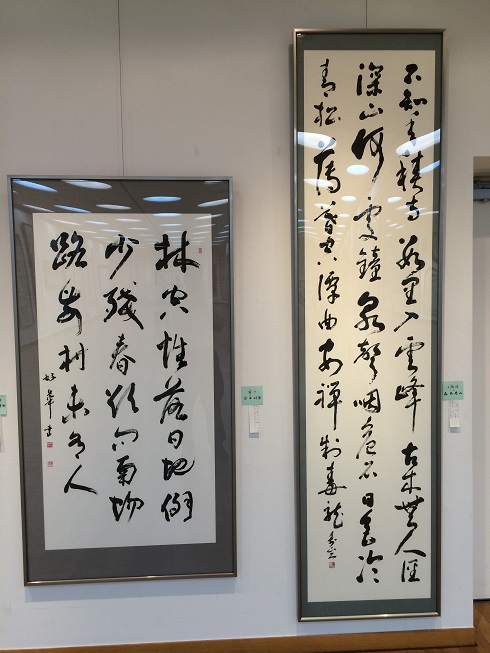 不知香積寺數里入雲峰古木無人徑
深山何處鐘泉聲咽危石日色冷
青松薄暮空潭曲安禪制毒龍
林空惟落日地僻
少殘春欲問南
路村人
書